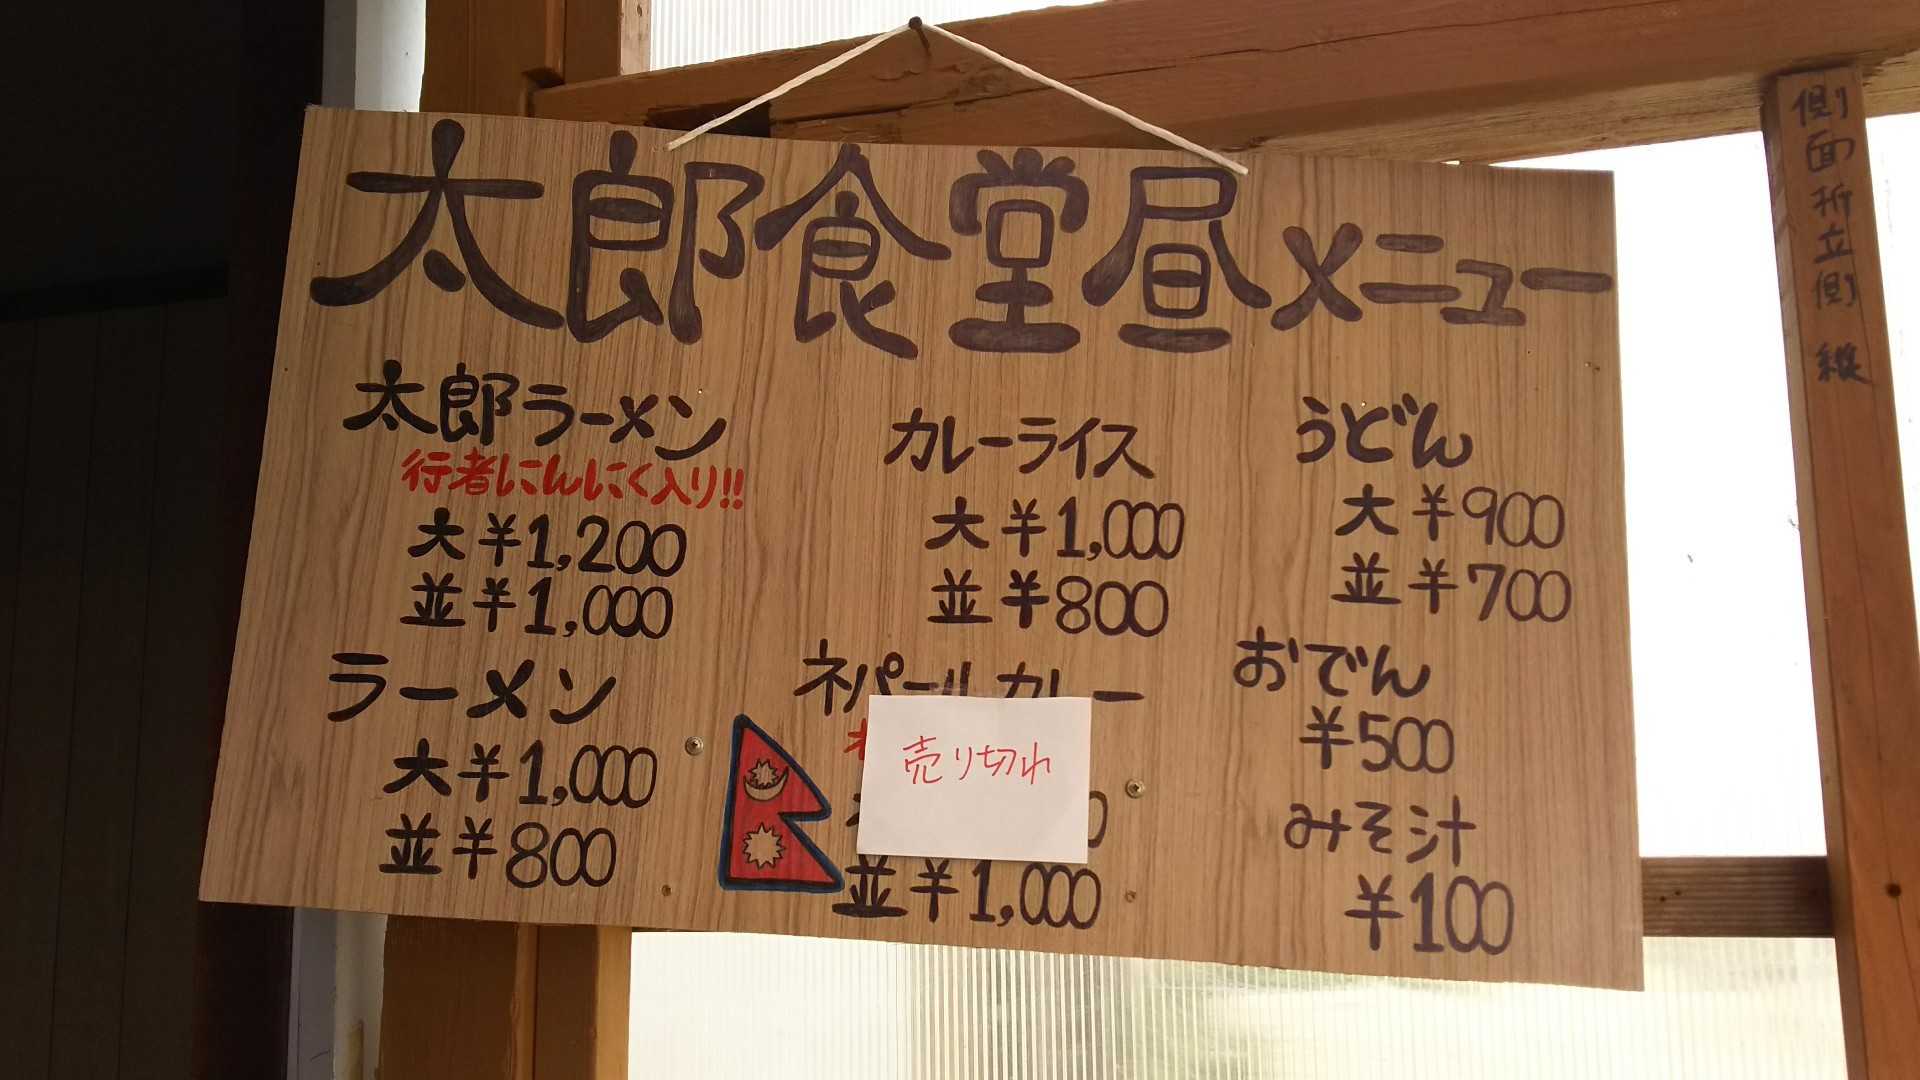 太郎食堂昼メニュー
太郎ラーメン
行者にんにく入り!!
大￥1,200
並￥1,000
ラーメン
大￥1,000
並￥800
カレーライス
大￥1,000
並￥800
ネパールカレー
売り切れ
並￥1,000
うどん
大￥900
並￥700
おでん
￥500
みそ汁
￥100
側面折立側 縦